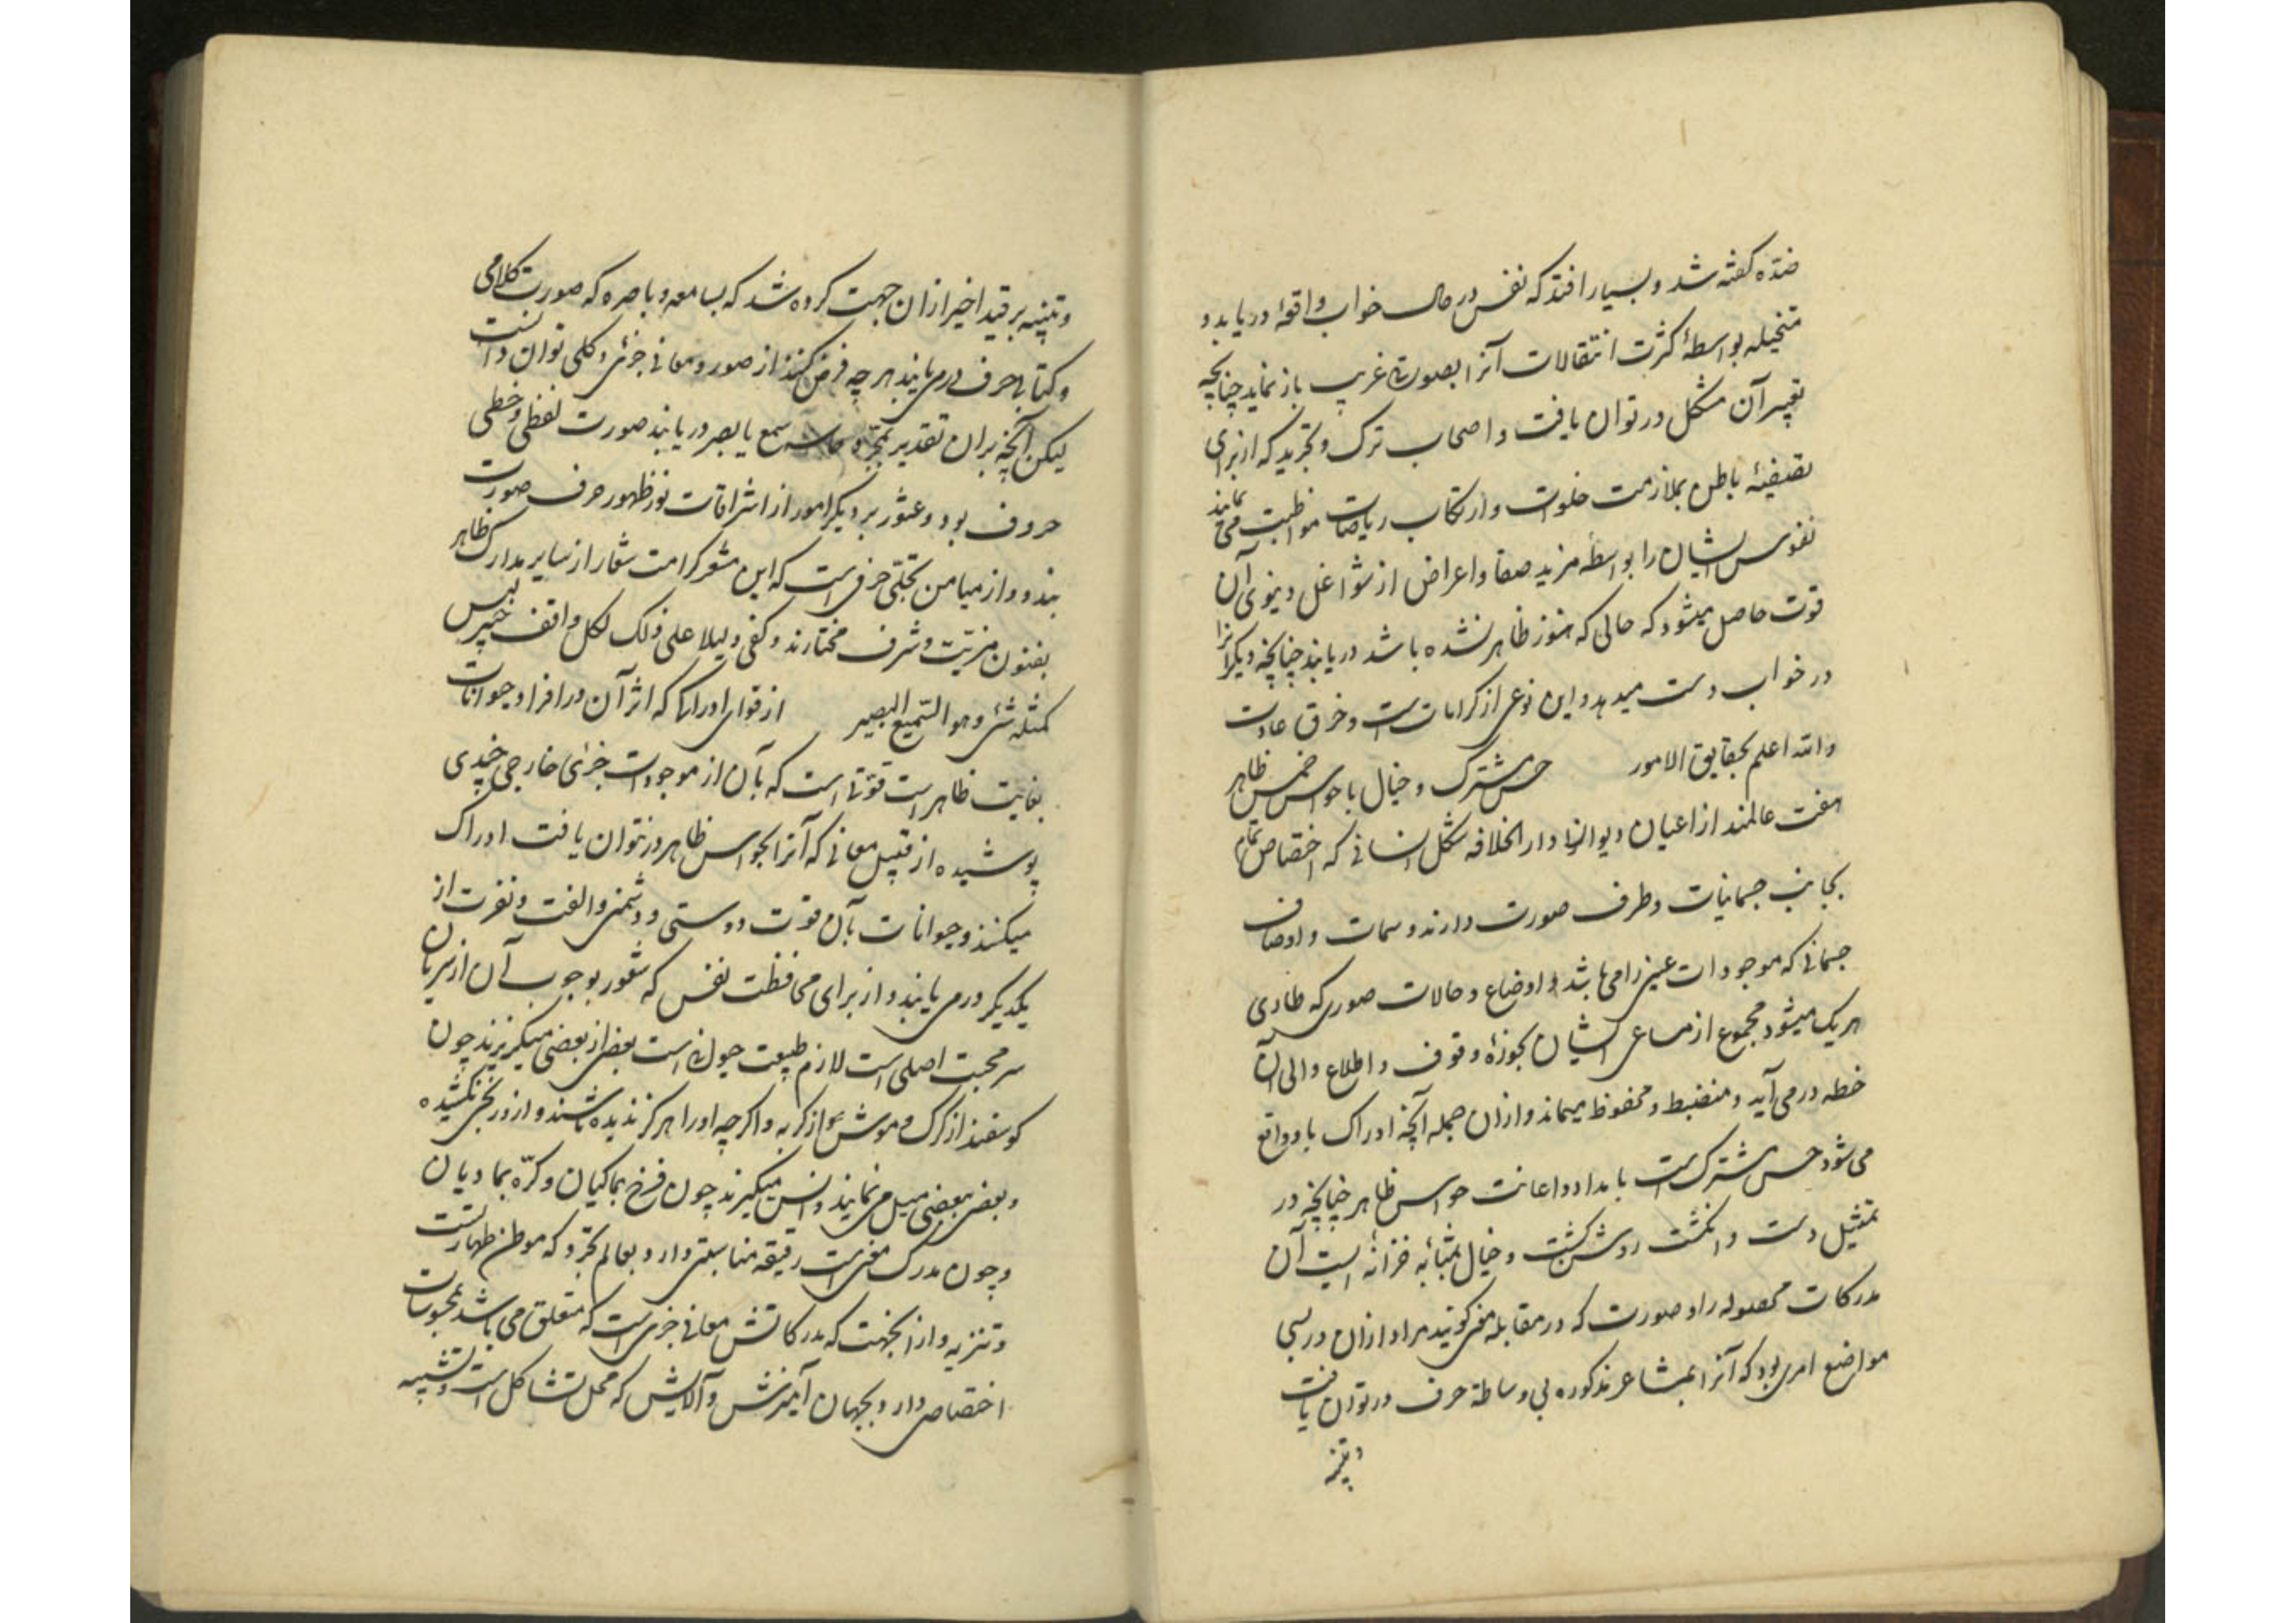 ضدّه گفته شد و بسیار افتد که نفس در حال خواب واقعهٔ دریابد و
متخیله بواسطهٔ کثرت انتقالات آنرا بصورتی غریب باز نماید چنانچه
تعبیر آن مشکل در توان یافت و اصحاب ترک و تجرید که از برای
تصفیهٔ باطن بملازمت خلوت و ارتکاب ریاضات مواظبت می نمایند
نفوس ایشان را بواسطه مزید صفا و اعراض از شواغل دنیوی آن
قوت حاصل میشود که حالی که هنوز ظاهر نشده باشد دریابند چنانچه دیگرانرا
در خواب دست میدهد و این نوعی از کراماتست و خرق عادت
والله اعلم بحقایق الامور حس مشترک و خیال با حواس خمس ظاهر
هفت عالمند از اعیان دیوان دار الخلافه شکل انسانی که اختصاص تمام
بجانب جسمانیات و طرف صورت دارند و سمات و اوصاف
جسمانی که موجودات عینی را می باشد و اوضاع و حالات صوری که طاری
هر یک میشود مجموع از مساعی ایشان بحوزهٔ وقوف و اطلاع والی آن
خطه درمی آید و منضبط و محفوظ میماند و ازان جمله آنچه ادراک بدو واقع
می شود حس مشترک است بامداد و اعانت حواس ظاهر چنانچه در
تمثیل دست و انگشت روشن گشت و خیال بمثابه خزانهٔ ایست آن
مدرکات محصوله را و صورت که در مقابله معنی گویند مراد ازان درسی
مواضع امری بود که آنرا بمشاعر مذکوره بی وساطهٔ حرف در توان یافت
و تنبیه
و تنبیه بر قید اخیر ازان جهت کرده شد که بسامعه و باصره که صورت کلامی
و کتابی حرف درمی یابند هر چه فرض کنند از صور و معانی جزئی و کلی توان دانست
لیکن آنچه بران تقدیر بمجرد حاسه سمع یا بصر دریابند صورت لفظی و خطی
حروف بود و عثور بر دیگر امور از اشراقات نور ظهور حرف صورت
بندد و از میامن تجلّی حرفی است که این مشعر کرامت شعار از سایر مدارک ظاهر
بفنون مزیّت و شرف مختارند و کفی دلیلا علی ذلک لکل واقف خبیر لیس
کمثله شئ و هو السّمیع البصیر از قوای ادراکی که اثر آن در افراد حیوانات
بغایت ظاهر است قوّتی است که بآن از موجودات جزئی خارجی چیزی
پوشیده از قبیل معانی که آنرا بحواس ظاهر در نتوان یافت ادراک
میکنند و حیوانات بآن قوت دوستی و دشمنی و الفت و نفرت از
یکدیگر درمی یابند و از برای محافظت نفس که شعور بوجوب آن از سریان
سر محبت اصلی است لازم طبیعت حیوانی است بعضی از بعضی میگریزند چون
گوسفند از گرگ و موش از گربه و اگر چه او را هرگز ندیده باشند و ازو رنجی نکشیده
و بعضی ببعضی میل می نمایند و انس میگیرند چون فرخ بماکیان و کرّه بمادیان
و چون مدرک معنی است رقیقه مناسبتی دارد بعالم تجرد که موطن طهارتست
و تنزیه و ازانجهت که مدرکاتش معانی جزئی است که متعلق می باشد بمحسوسات
اختصاصی دارد بجهان آمیزش و آلایش که محل تشاکل است و تشبیه